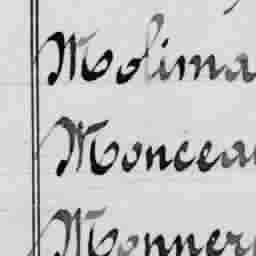 Molina
Moncea
Monner